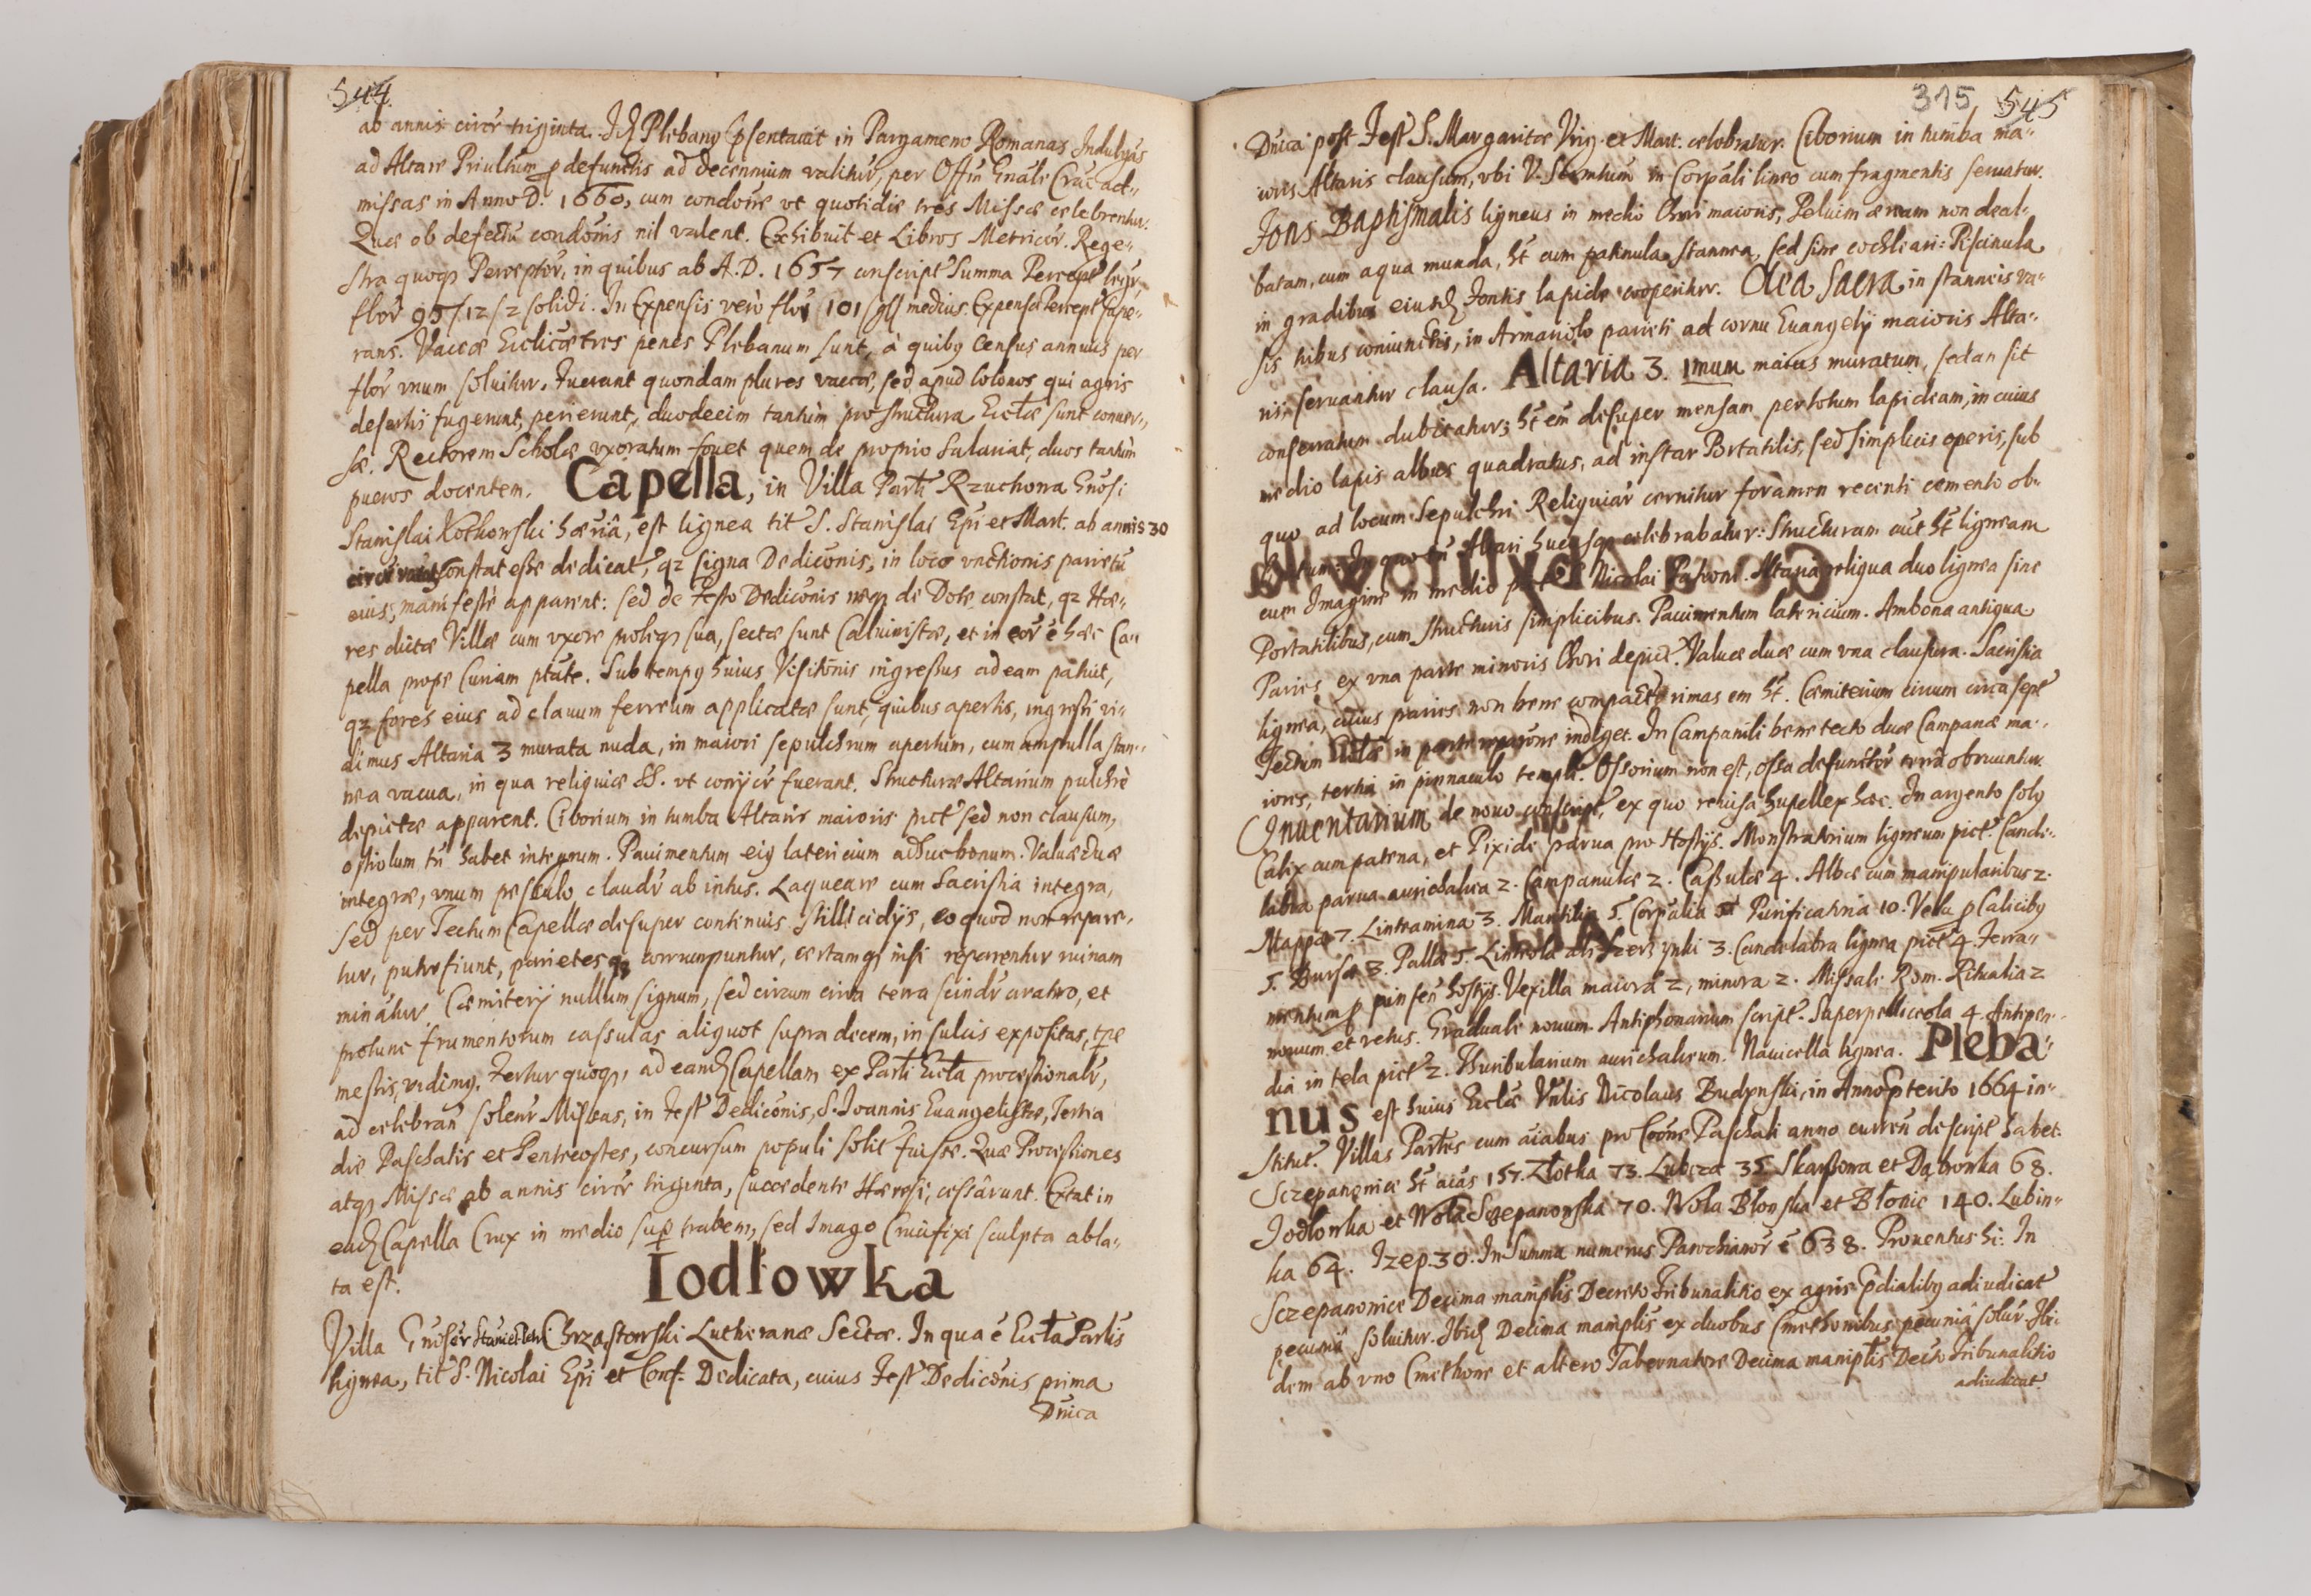 544
ab annis circr triginta. Id Plebany Psentauit in Pargameno Romanas Indulgas
ad Altare Priuiltum p defunctis ad decennium valitur, per Offin Gnale Crac ad-
missas in Anno D. 1660, cum condoñe vt quotidie tres Missæ celebrentur.
Quæ ob defectũ condoñis nil valent. Exhibuit et Libros Metricor. Rege-
stra quoqs Perceptor, in quibus ab A.D. 1657 conscript Summa Percept
flor 95/12/2 solidi. In Expensis verò flor 101/ medius. Expensa Percept supe-
rans. Vaccæ Ecclicæ tres penes Plebanum sunt, à quibȝ Census annuus per
flor vnum soluitur. Fuerant quondam plures vaccæ, sed apud Colonos qui agris
desertis fugerunt, perierunt, duodecim tantùm pro structura Ecclæ sunt conuer-
sæ. Rectorem Scholæ vxoratum fouet quem de proprio Salariat, duos tantùm
pueros docentem. Capella, in Villa Parti Rzuchowa Gnosi
Stanislai Kochowski hæriâ, est lignea tit S. Stanislai Epi et Mart. ab annis 30
constat esse dedicat, qz signa Dediconis, in loco vnctionis parietũ
eius, manifestè apparent: sed de Festo Dediconis neqs de Dote constat, qz Hæ-
res dictæ Villæ cum vxore proleqs sua, sectæ sunt Caluinistæ, et in eor ẽ hæc Ca-
pella prope Curiam ptate. Sub tempȝ huius Visitonis ingressus ad eam patuit,
qz fores eius ad clauum ferreum applicatæ sunt, quibus apertis, ingressi vi-
dimus Altaria 3 murata nuda, in maiori sepulchrum apertum, cum ampulla stan-
nea vacua, in qua reliquiæ SS. vt conijcr fuerant. Structuræ Altarium pulchrè
depictæ apparent. Ciborium in tumba Altaris maioris pict sed non clausum,
ostiolum tñ habet integrum. Pauimentum eiȝ latericium adhuc bonum. Valuæ duæ
integræ, vnum pessulo claudr ab intus. Laqueare cum Sacristia integra,
sed per Tectum Capellæ desuper continuis stillicidijs, eo quod non repare-
tur, putrefiunt, parietesqs corrumpuntur, certamqs nisi reparentur ruinam
minãtur. Cæmiterij nullum signum, sed circum circa terra scindr aratro, et
protunc frumentorum cassulas aliquot supra decem, in sulcis expositas, tpe
messis, vidimȝ. Fertur quoqs, ad eand Capellam ex Parti Eccla processionalr,
ad celebran solenr Missas, in Fest Dediconis, S. Ioannis Euangelistæ, Tertia
die Paschatis et Pentecostes, concursum populi solit fuisse. Quæ Processiones
atqs Missæ ab annis circr triginta, succedente Hæresi, cessârunt. Extat in
ead Capella Crux in medio sup trabem, sed Imago Crucifixi sculpta abla-
ta est.
Iodłowka
Villa Gnoser Chrząstowski Lutheranæ Sectæ. In qua ẽ Eccla Partis
lignea, tit S. Nicolai Epi et Conf: Dedicata, cuius Fest Dediconis prima
Dnica
315, 545
Dnica post Fest S. Margaritæ Virg. et Mart. celebratur. Ciborium in tumba ma-
ioris Altaris clausum, vbi V. Scrmtum in Corpali lineo cum fragmentis seruatur.
Fons Baptismalis ligneus in medio Chori maioris, Peluim æream non deal-
batam, cum aqua munda, ht cum patinula stannea, sed sine cochleari: Piscinula
in gradibus eiusd Fontis lapide cooperitur. Olea Sacra in stanneis va-
sis tribus coniunctis, in Armariolo parieti ad cornu Euangelij maioris Alta-
ris seruantur clausa. Altaria 3. 1mum maius muratum, sed an sit
conserratum dubitatur; ht em desuper mensam per totum lapideam, in cuius
medio lapis albus quadratus, ad instar Portatilis, sed simplicis operis, sub
quo ad locum Sepulchri Reliquiar cernitur foramen recenti cemento ob-
In quo tñ Altari hucusqs celebrabatur: Structuram aut ht ligneam
cum Imagine in medio Nicolai Patroni. Altaria reliqua duo lignea sine
Portatilibus, cum structuris simplicibus. Pauimentum latericium. Ambona antiqua
Paries ex vna parte minoris Chori depict. Valuæ duæ cum vna clausura. Sacristia
lignea, cuius paries non bene compact rimas em ht. Cæmiterium circum circa sept
Tectum Ecclæ in parte indiget. In Campanili bene tecto duæ Campanæ ma-
iores, tertia in pinnaculo templi. Ossorium non est, ossa defunctor terrâ obruuntur.
Inuentarium de nouo conscript, ex quo reuisa supellex hæc. In argento solȝ
Calix cum patena, et Pixide parua pro Hostijs. Monstratorium ligneum pict. Cande-
labra parua aurichalcea 2. Campanulæ 2. Cassulæ 4. Albæ cum manipularibus 2.
Mappæ 7. Linteamina 3. Mantilia 5. Corpalia Purificatoria 10. Vela p Calicibȝ
5. Bursæ 3. Pallæ 5. Linteola 3. Candelabra lignea pict 4. Ferra-
mentum p pinsen hostijs. Vexilla maiora 2, minora 2. Missale Rom. Ritualia 2
nouum et vetus. Graduale nouum. Antiphonarium script. Superpelliceola 4. Antipen-
dia in tela pict 2. Thuribularium aurichalceum. Nauicella lignea. Pleba-
nus est huius Ecclæ Vnlis Nicolaus Budynski, in Anno Pterito 1664 in-
stitut. Villas Partes cum aiabus pro Coone Paschali anno curren descript habet.
Sczepanowice ht aias 157. Zlotka 73. Lubcza 35. Skarszowa et Dąbrowka 68.
Jodłowka et Wola Sczepanowska 70. Wola Błonska et Błonie 140. Lubin-
ka 64. Izep. 30. In Summa numerus Parochianor ẽ 638. Prouentus hi: In
Sczepanowice Decima maniplis Decreto Tribunalitio ex agris Pdialibȝ adiudicat
pecunia soluitur. Ibid Decima maniplis ex duobus Cmethonibus pecunia solur. Ibi-
dem ab vno Cmethone et altero Tabernatore Decima maniplis Decto Tribunalitio
adiudicat